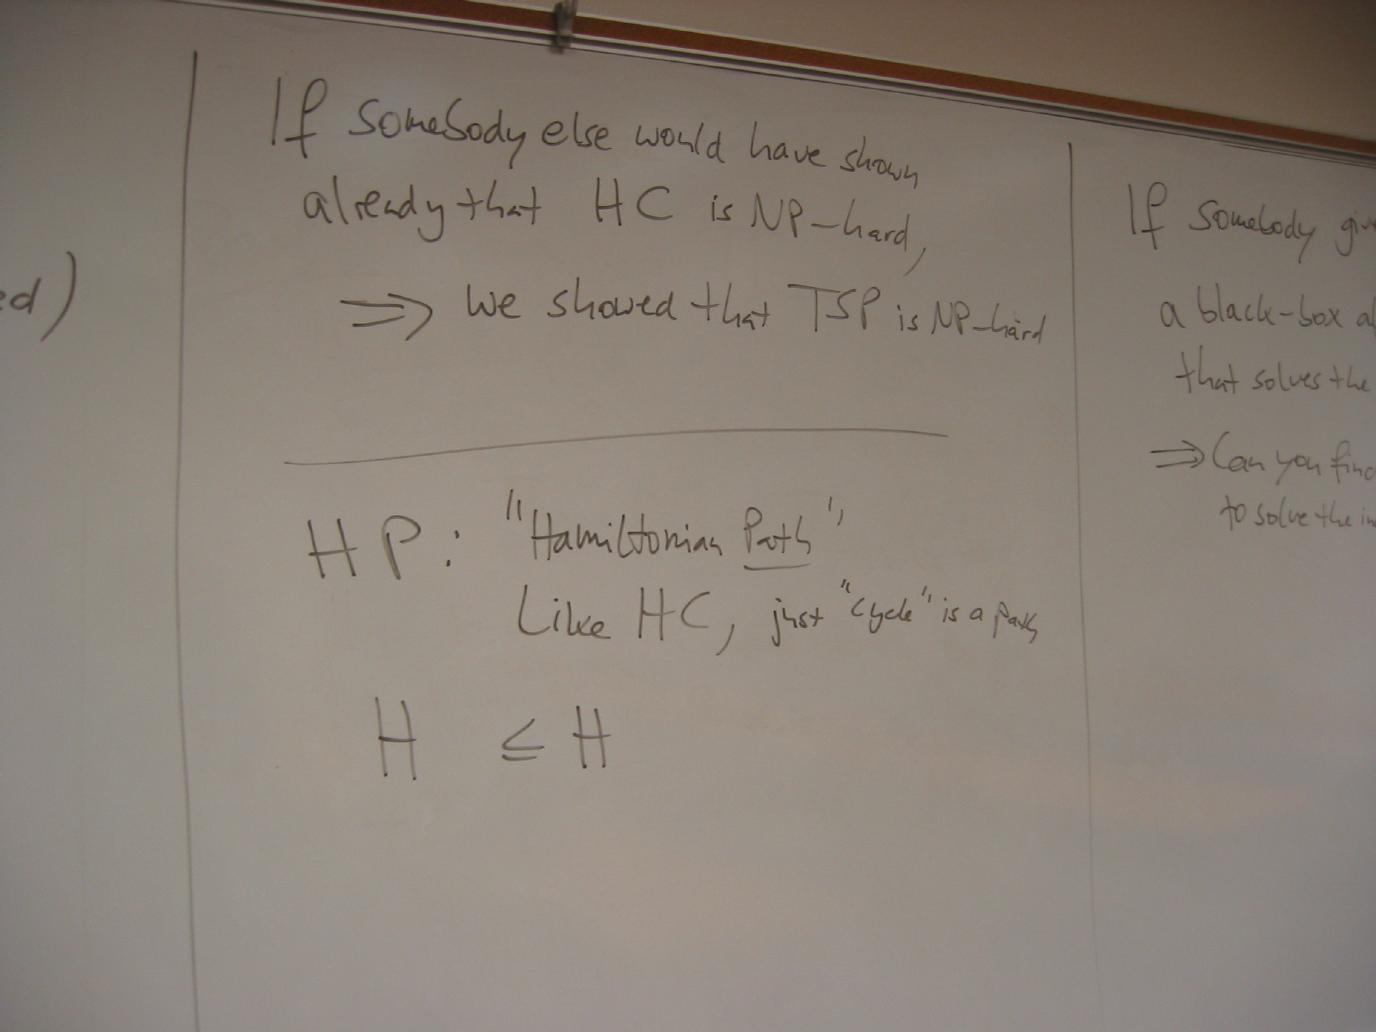 ed)
If somebody else would have shown
already that HC is NP-hard,
⇒ we showed that TSP is NP-hard
HP: "Hamiltonian Path"
Like HC, just "cycle" is a path
H ≤ H
If somebody giv
a black-box al
that solves the
⇒ Can you find
to solve the in